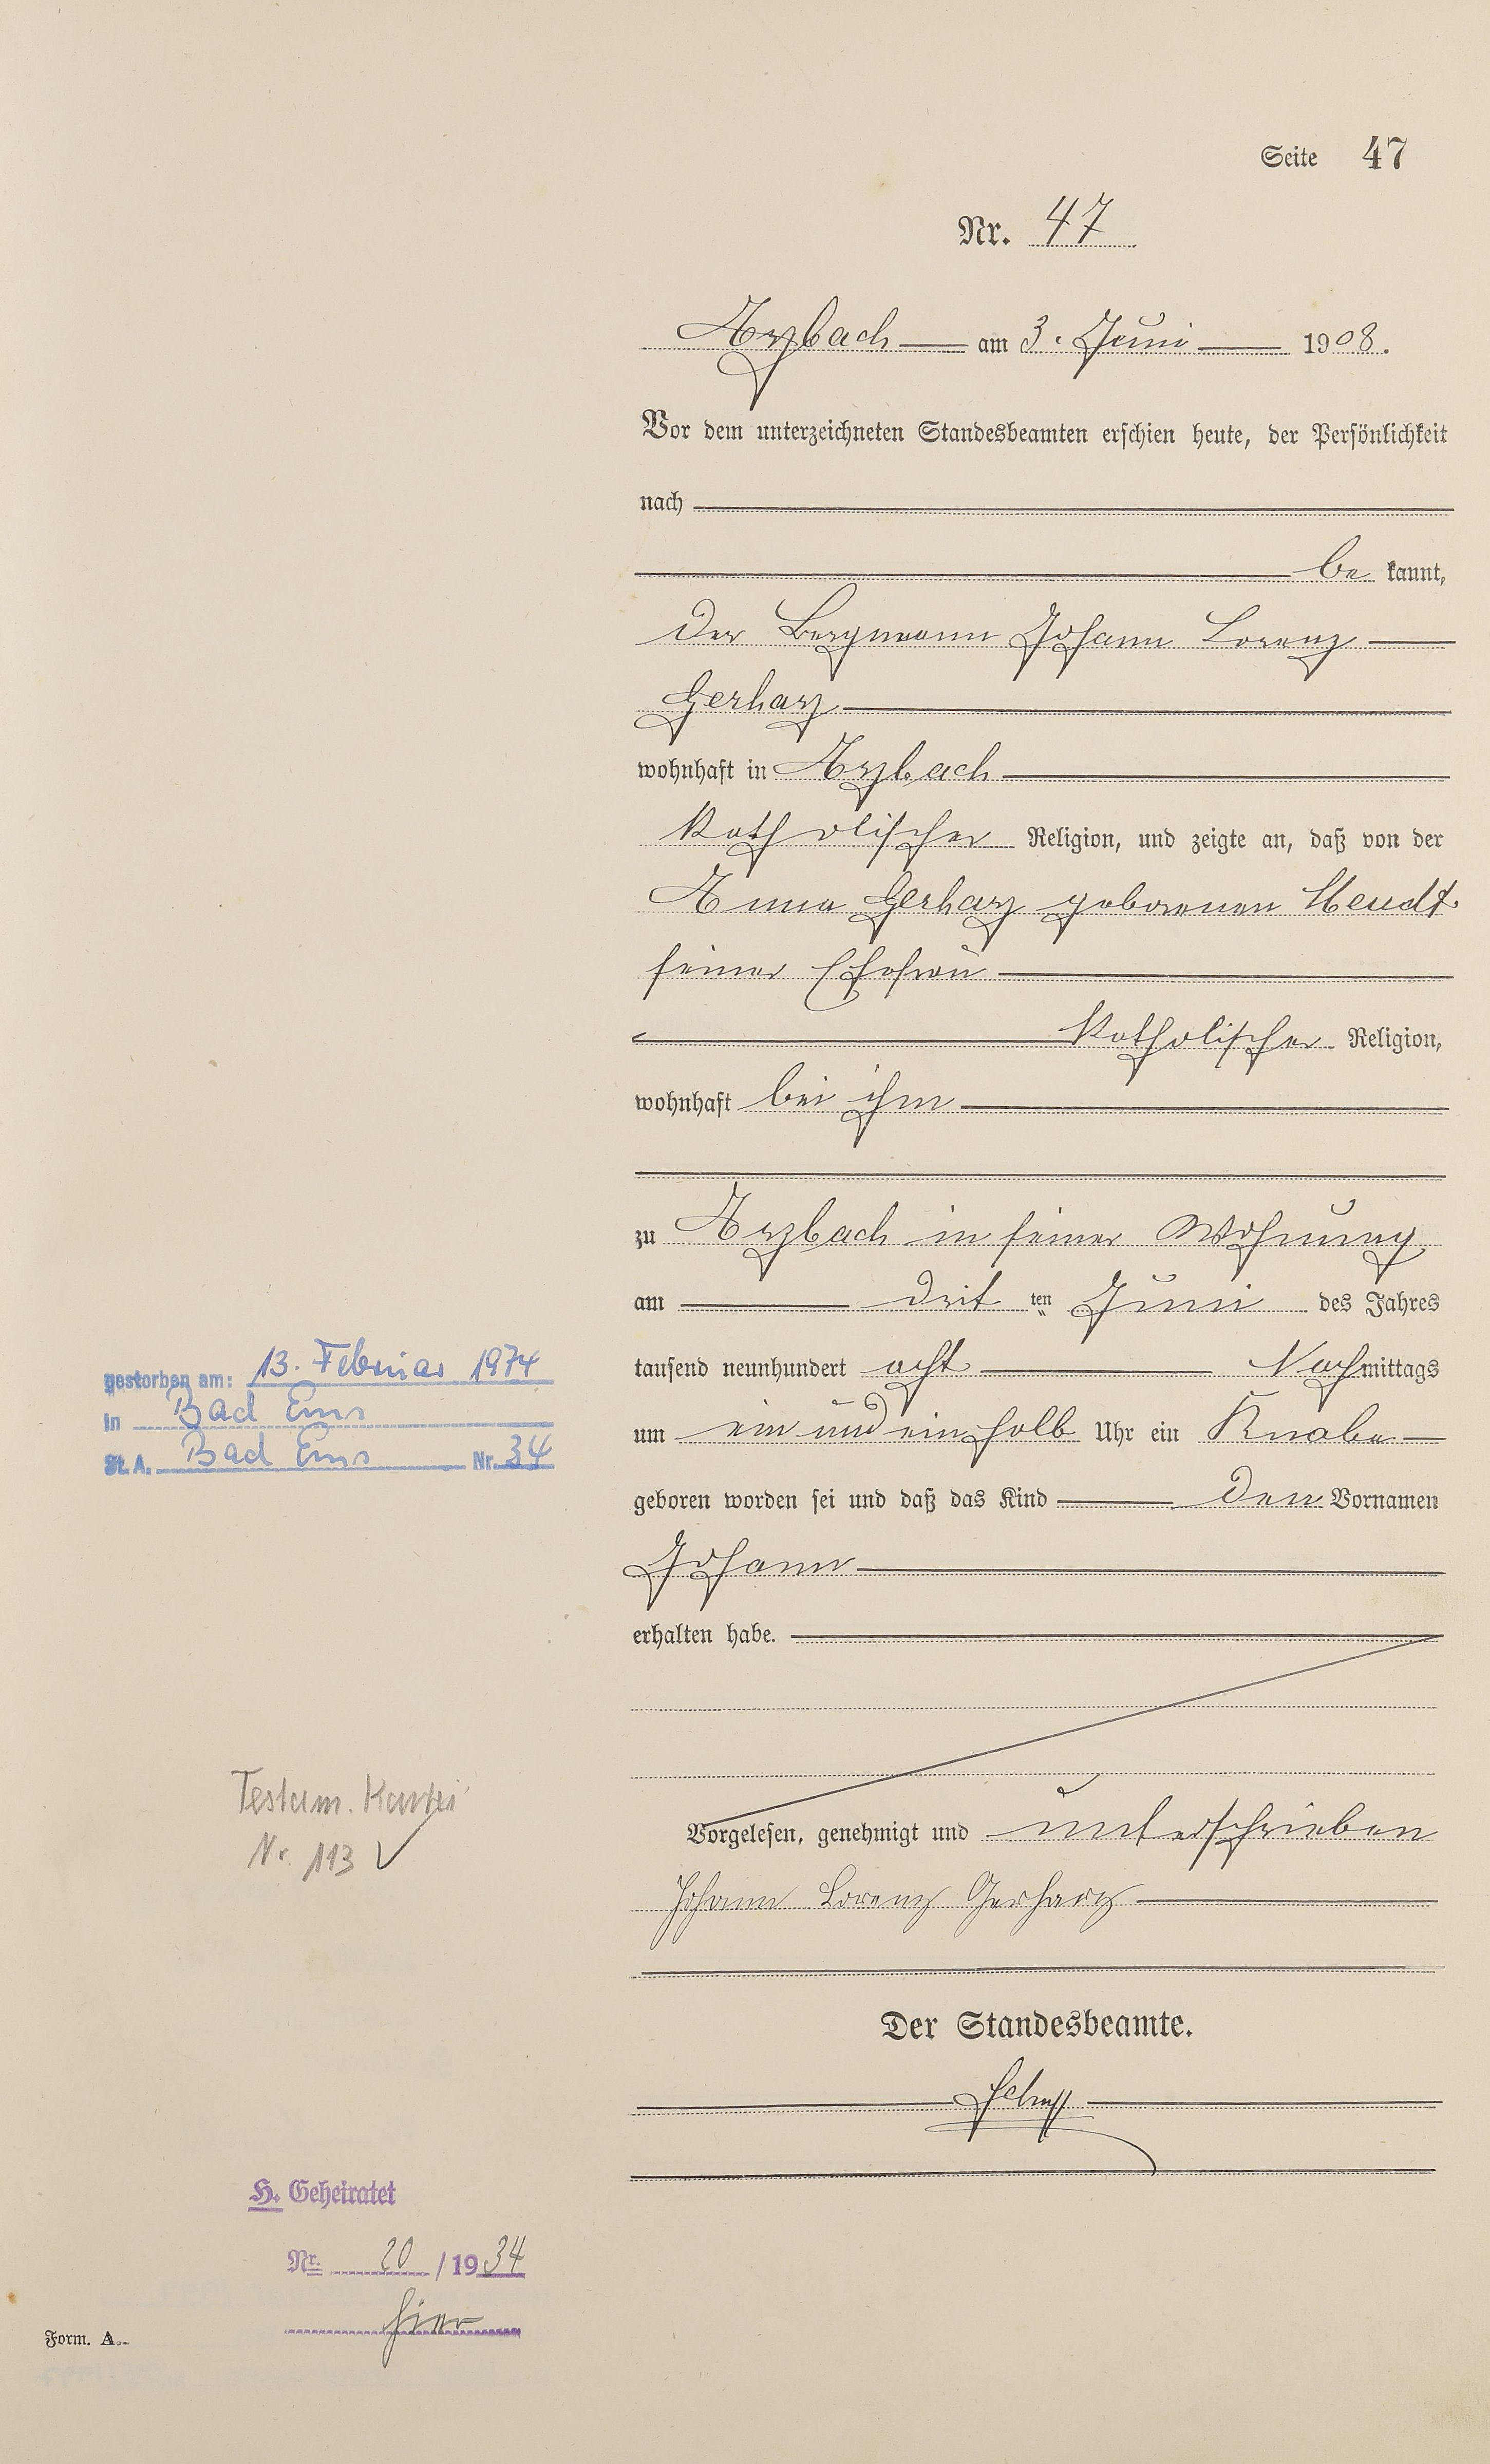 Seite 47
Nr. 47
Arzbach am 3. Juni 1908.
Vor dem unterzeichneten Standesbeamten erschien heute, der Persönlichkeit
nach
be kannt,
der Bergmann Johann Lorenz
Gerharz
wohnhaft in Arzbach
katholischer Religion, und zeigte an, daß von der
Anna Gerharz geborenen Heudt
seiner Ehefrau
katholischer Religion,
wohnhaft bei ihm
zu Arzbach in seiner Wohnung
am drit ten Juni des Jahres
tausend neunhundert acht Nachmittags
um ein und ein halb Uhr ein Knabe
geboren worden sei und daß das Kind den Vornamen
Johann
erhalten habe.
Vorgelesen, genehmigt und unterschrieben
Johann Lorenz Gerharz
Der Standesbeamte.
gestorben am: 13. Februar 1974
in Bad Ems
St. A. Bad Ems Nr. 34
Testam. Kartei
Nr. 113 ✓
H. Geheiratet
Nr. 20 / 1934
hier
Form. A.